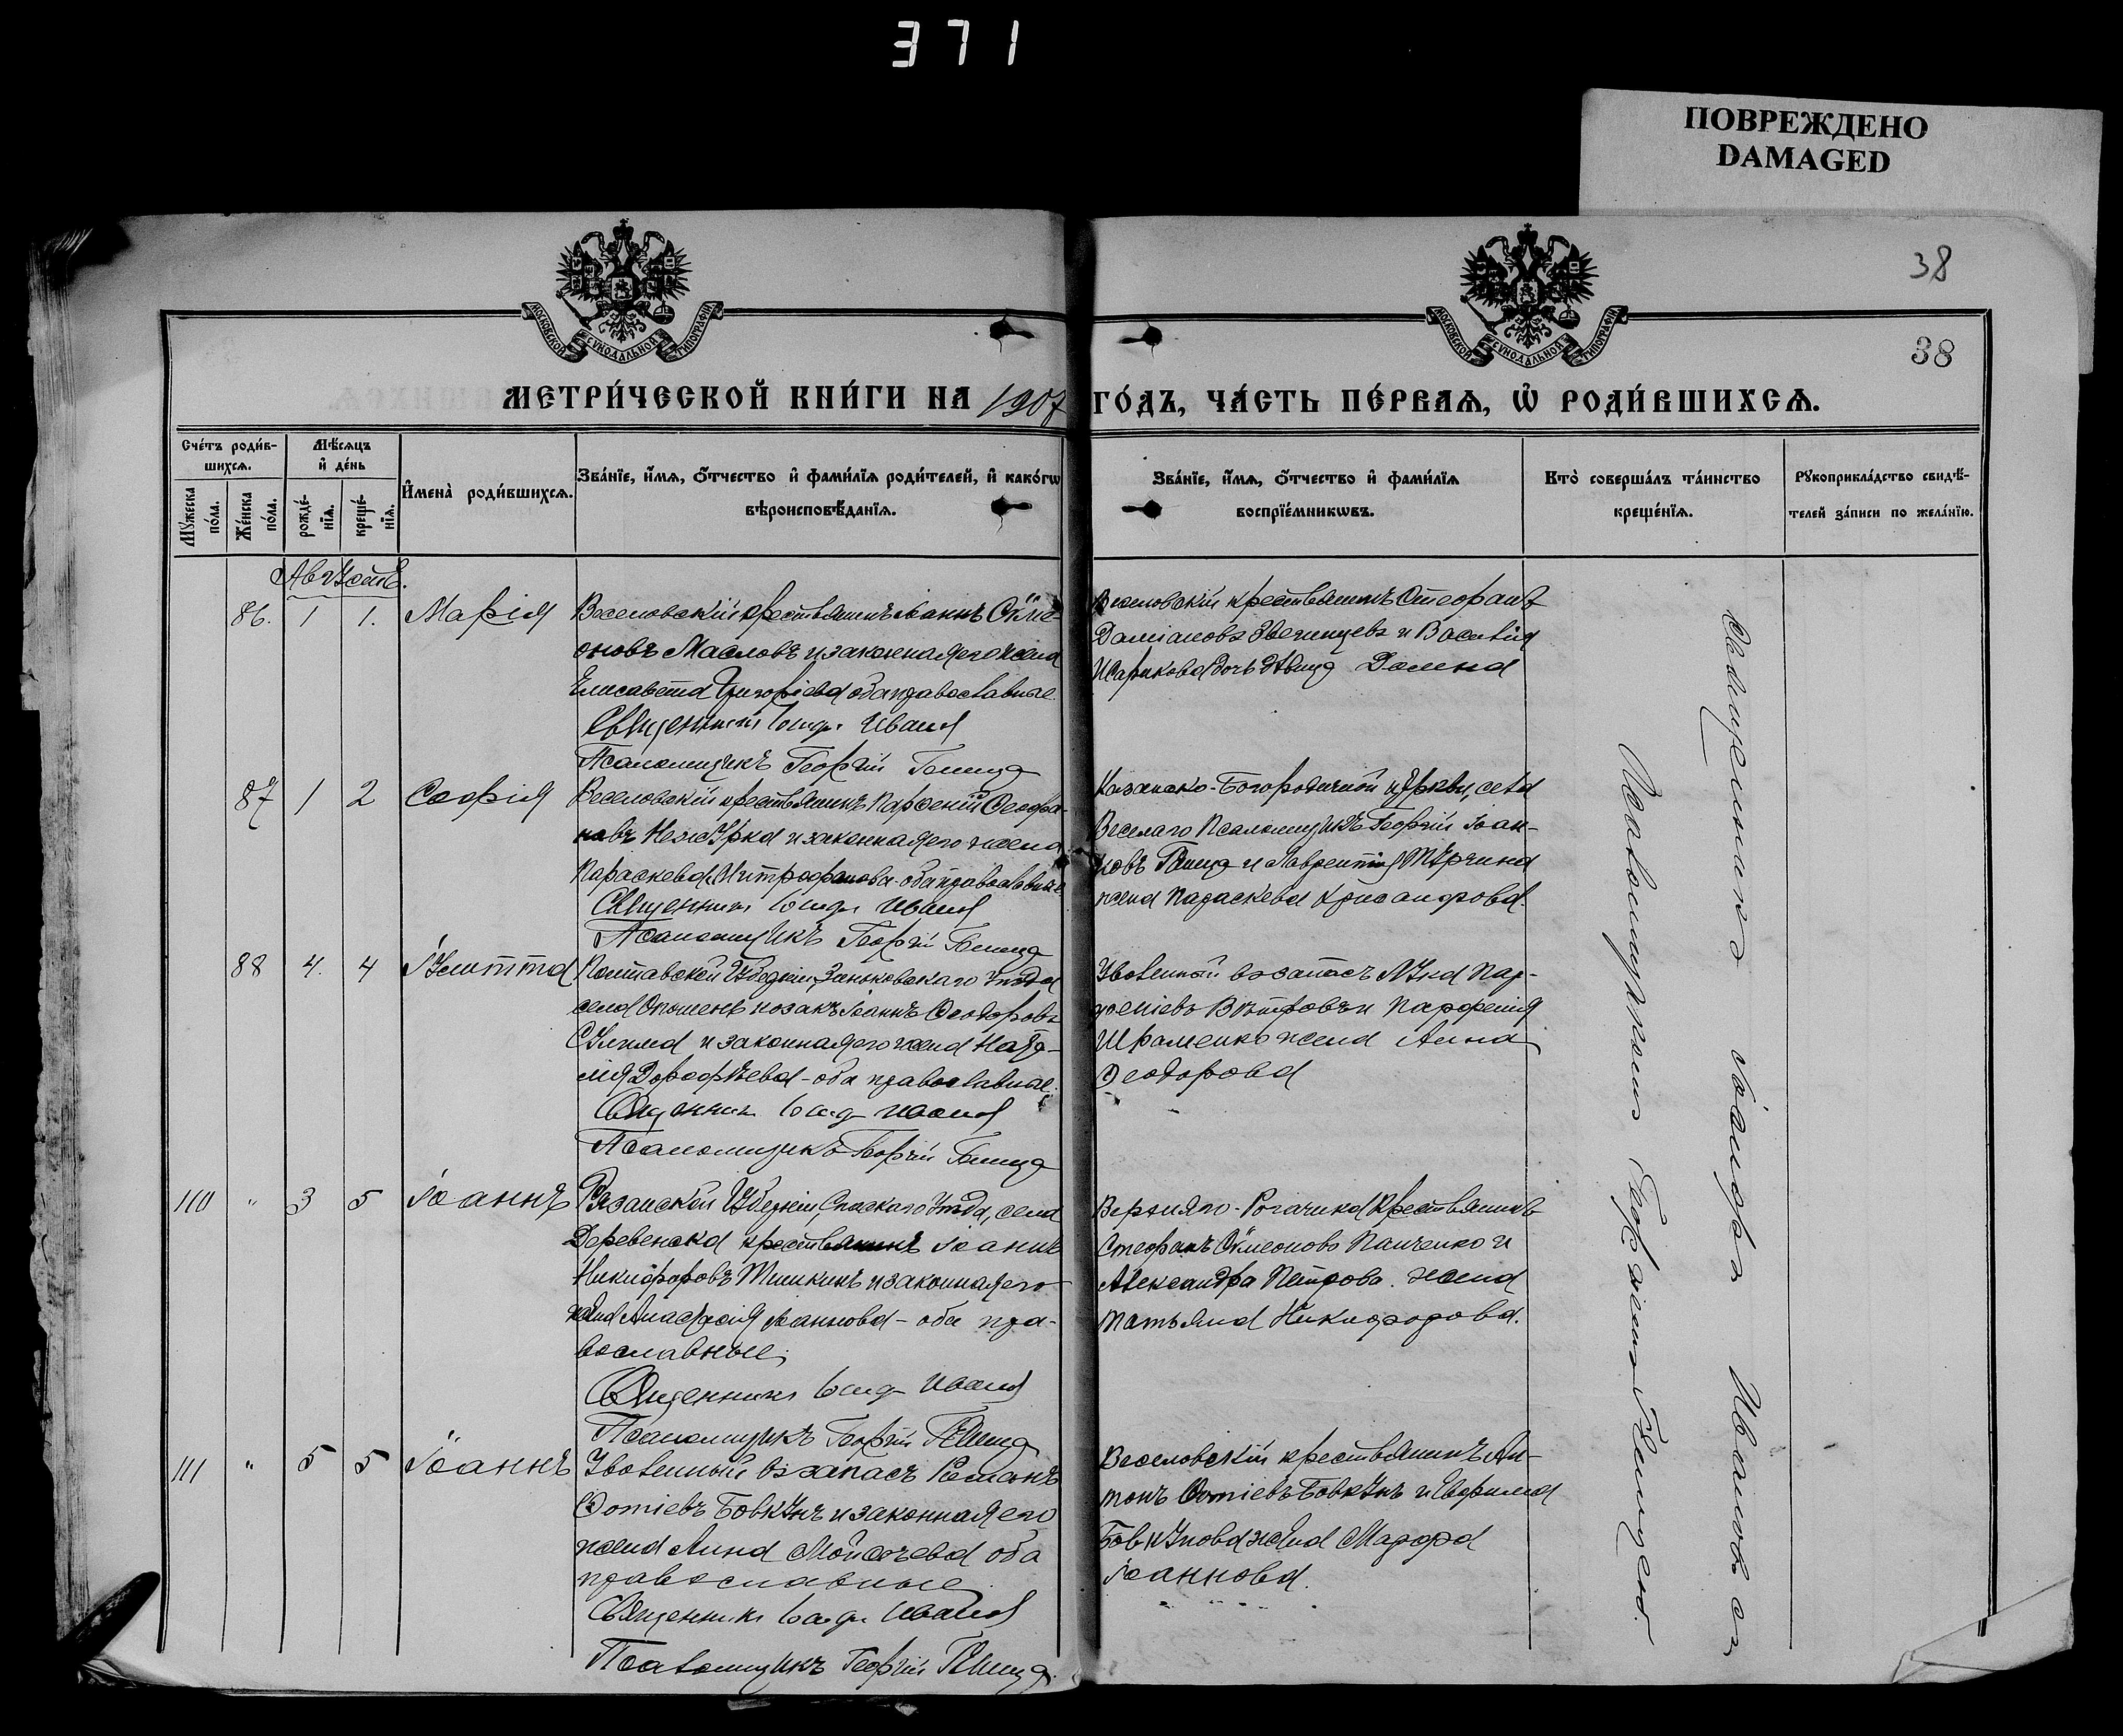 371
ПОВРЕЖДЕНО
DAMAGED
38
38
МОСКОВСКОЙ СѴНОДАЛЬНОЙ ТИПОГРАФІИ
МОСКОВСКОЙ СѴНОДАЛЬНОЙ ТИПОГРАФІИ
МЕТРИ́ЧЕСКОЙ КНИ́ГИ НА 1907 ГО́ДЪ, ЧА́СТЬ ПЕ́РВАѦ, Ѡ҆ РОДИ́ВШИХСѦ.
Сче́тъ роди́в-
шихсѧ.
Мꙋжеска по́ла.
Же́нска по́ла.
Мѣ́сѧцъ
и҆ де́нь
рожде́-
нїѧ.
креще́-
нїѧ.
И҆мена̀ роди́вшихсѧ.
Зва́нїе, и҆́мѧ, ѻ҆́тчество и҆ фами́лїѧ роди́телей, и҆ како́гѡ
вѣроисповѣ́данїѧ.
Зва́нїе, и҆́мѧ, ѻ҆́тчество и҆ фами́лїѧ
воспрїе́мникѡвъ.
Кто̀ соверша́лъ та́инство
креще́нїѧ.
Рꙋкоприкла́дство свидѣ́-
телей за́писи по жела́нїю.
Августъ.
86. 1 1. Марія
Веселовскій крестьянинъ Іоаннъ Сѵме-
оновъ Масловъ и законная его жена
Елисавета Григоріева оба православные.
Священникъ Іоанн Иванов
Псаломщикъ Георгій
Веселовскій крестьянинъ Стефанъ
Даміановъ и Василія
дочь девица
87 1 2 Софія
Веселовскій крестьянинъ Парѳеній Ѳеофа-
новъ и законная его жена
Параскева Митрофанова оба православные
Священникъ Іоанн Иванов
Псаломщикъ Георгій
Казанско-Богородичной церкви, села
Веселаго Псаломщикъ Георгій Іоан-
новъ и Лаврентія
жена Параскева Хрисанфова.
88 4. 4
Полтавской губерніи, Зеньковскаго уѣзда
села Опошень козакъ Іоаннъ Ѳеодоровъ
и законная его жена Ната-
лія Дороѳѣева - оба православные.
Священникъ Іоанн Иванов
Псаломщикъ Георгій
Уволенный въ запасъ Лука Пар-
ѳеніевъ и Парфенія
Шраменко жена Анна
Ѳеодорова
110 " 3 5 Іоаннъ
Рязанской губерніи, Спаскаго уѣзда, села
Деревенска крестьянинъ Іоаннъ
Никифоровъ Тишкинъ и законная его
жена Анастасія Іоаннова - оба пра-
вославные;
Священникъ Іоанн Иванов
Псаломщикъ Георгій
Верхняго-Рогачика крестьянинъ
Стефанъ Сѵмеоновъ Панченко и
Александра Петрова жена
Татьяна Никифорова.
111 " 5 5 Іоаннъ
Уволенный въ запасъ Романъ
Фотіевъ Бовкунъ и законная его
жена Анна Мойсеева оба
православные
Священникъ Іоанн Иванов
Псаломщикъ Георгій
Веселовскій крестьянинъ Ан-
тонъ Фотіевъ Бовкунъ и Ефима
Бовкунова жена Марфа
Іоаннова.
Священникъ Іоаннъ Ивановъ съ
Псаломщикомъ Георгіемъ